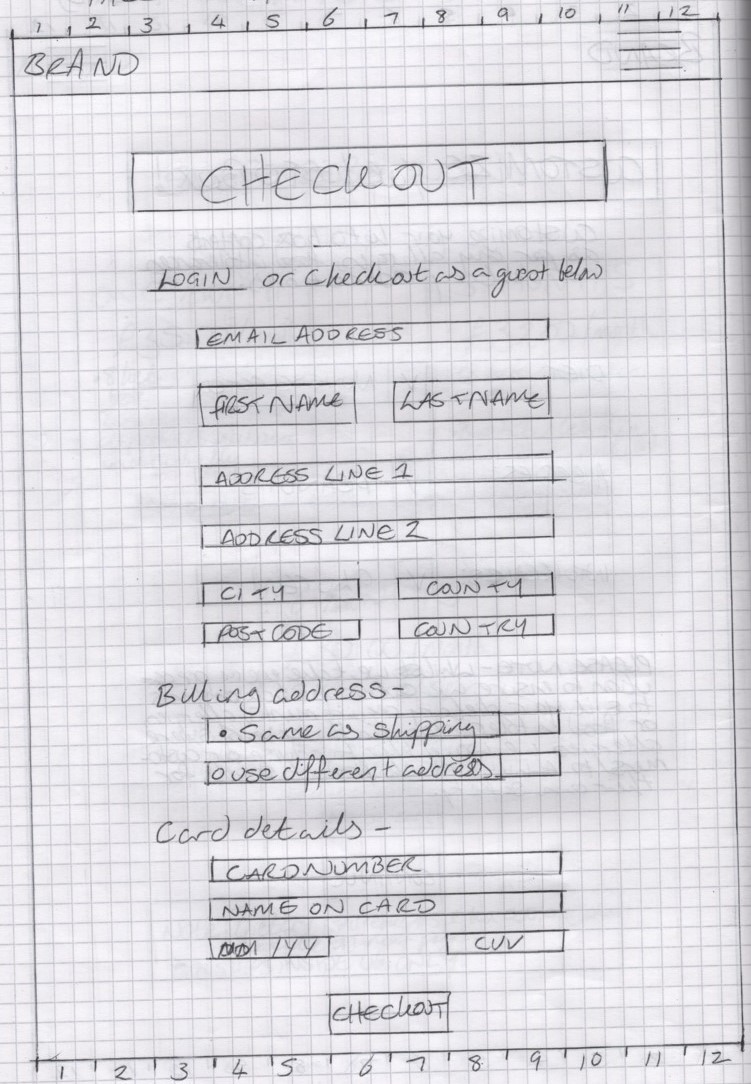 1 2 3 4 5 6 7 8 9 10 11 12
BRAND
CHECKOUT
LOGIN or checkout as a guest below
EMAIL ADDRESS
FIRST NAME LAST NAME
ADDRESS LINE 1
ADDRESS LINE 2
CITY COUNTY
POSTCODE COUNTRY
Billing address -
• Same as shipping
o use different address
Card details -
CARD NUMBER
NAME ON CARD
MM/YY CVV
CHECKOUT
1 2 3 4 5 6 7 8 9 10 11 12